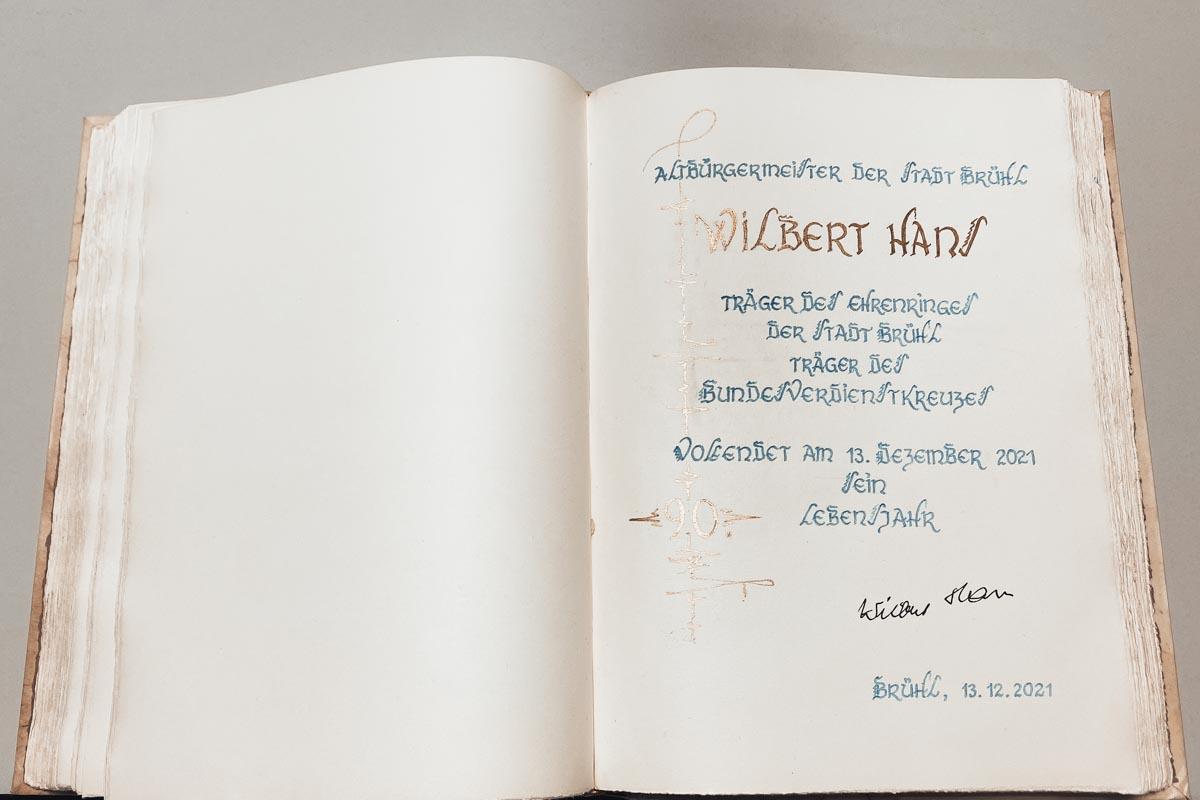 ALTBÜRGERMEISTER DER STADT BRÜHL
WILBERT HANS
TRÄGER DES EHRENRINGES
DER STADT BRÜHL
TRÄGER DES
BUNDESVERDIENSTKREUZES
VOLLENDET AM 13. DEZEMBER 2021
SEIN
90. LEBENSJAHR
Wilbert Hans
BRÜHL, 13.12.2021